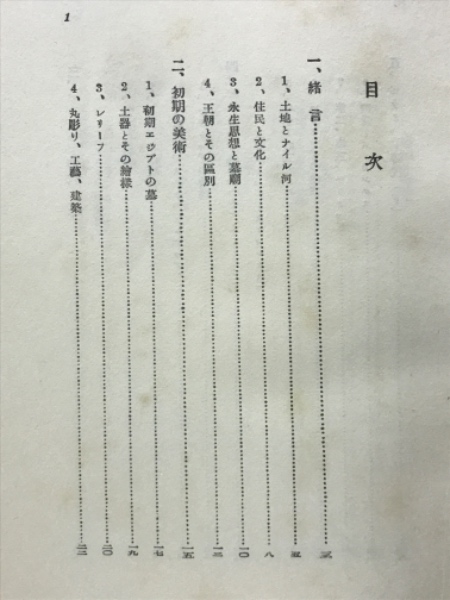 目次
一、緒言……三
1、土地とナイル河……五
2、住民と文化……八
3、永生思想と墓廟……一〇
4、王朝とその區別……一三
二、初期の美術……一五
1、初期エジプトの墓……一七
2、土器とその繪樣……一九
3、レリーフ……二〇
4、丸彫り、工藝、建築……二二
1